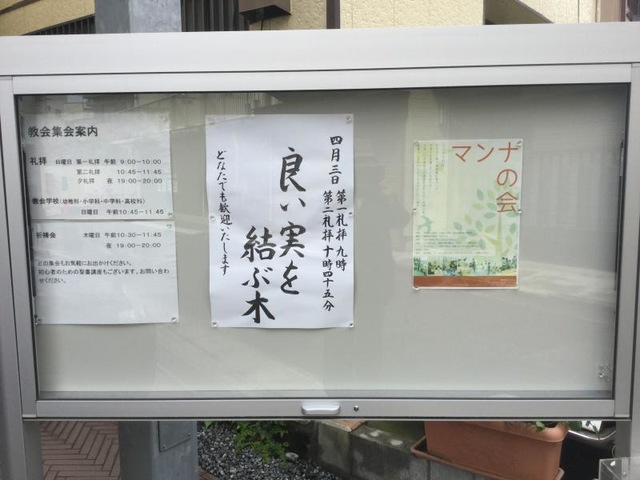 教会集会案内
礼拝 日曜日 第一礼拝 午前 9:00-10:00
第二礼拝 10:45-11:45
夕礼拝 夜 19:00-20:00
教会学校(幼稚科・小学科・中学科・高校科)
日曜日 午前10:45-11:45
祈祷会 木曜日 午前10:30-11:45
夜 19:00-20:00
どの集会もお気軽にお出かけください。
初心者のための聖書講座もございます。お問い合わ
せください。
四月三日 第一礼拝 九時
第二礼拝 十時四十五分
良い実を
結ぶ木
どなたでも歓迎いたします
マンナ
の会